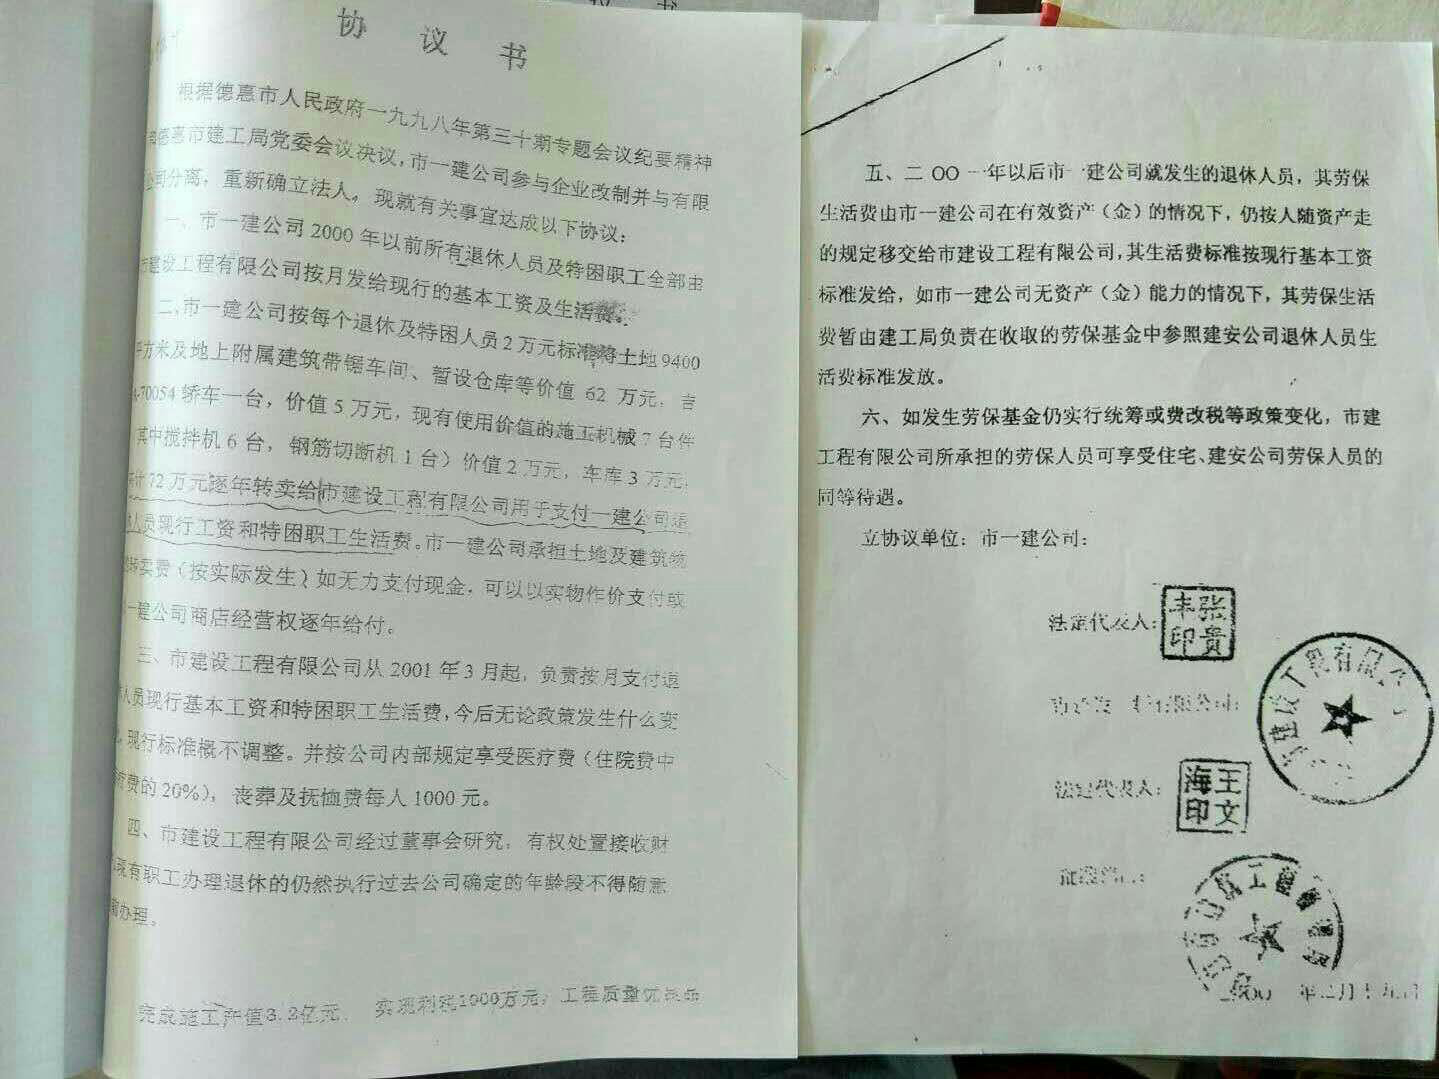 协议书
根据德惠市人民政府一九九八年第三十期专题会议纪要精神
德惠市建工局党委会议决议，市一建公司参与企业改制并与有限
公司分离，重新确立法人。现就有关事宜达成以下协议：
一、市一建公司2000年以前所有退休人员及特困职工全部由
建设工程有限公司按月发给现行的基本工资及生活费。
二、市一建公司按每个退休及特困人员2万元标准将土地9400
平方米及地上附属建筑带锯车间、暂设仓库等价值62万元，吉
-70054轿车一台，价值5万元，现有使用价值的施工机械7台件
其中搅拌机6台，钢筋切断机1台）价值2万元，车库3万元，
72万元逐年转卖给市建设工程有限公司用于支付一建公司退
人员现行工资和特困职工生活费。市一建公司承担土地及建筑物
转卖费（按实际发生）如无力支付现金，可以以实物作价支付或
一建公司商店经营权逐年给付。
三、市建设工程有限公司从2001年3月起，负责按月支付退
人员现行基本工资和特困职工生活费，今后无论政策发生什么变
，现行标准概不调整。并按公司内部规定享受医疗费（住院费中
疗费的20%），丧葬及抚恤费每人1000元。
四、市建设工程有限公司经过董事会研究，有权处置接收财
现有职工办理退休的仍然执行过去公司确定的年龄段不得随意
办理。
完成施工产值3.2亿元，实现利税1000万元，工程质量优良品
五、二OO一年以后市一建公司就发生的退休人员，其劳保
生活费由市一建公司在有效资产（金）的情况下，仍按人随资产走
的规定移交给市建设工程有限公司，其生活费标准按现行基本工资
标准发给，如市一建公司无资产（金）能力的情况下，其劳保生活
费暂由建工局负责在收取的劳保基金中参照建安公司退休人员生
活费标准发放。
六、如发生劳保基金仍实行统筹或费改税等政策变化，市建
工程有限公司所承担的劳保人员可享受住宅、建安公司劳保人员的
同等待遇。
立协议单位：市一建公司：
法定代表人：
张贵丰印
建设工程有限公
法定代表人：
王文海印
年二月十九日